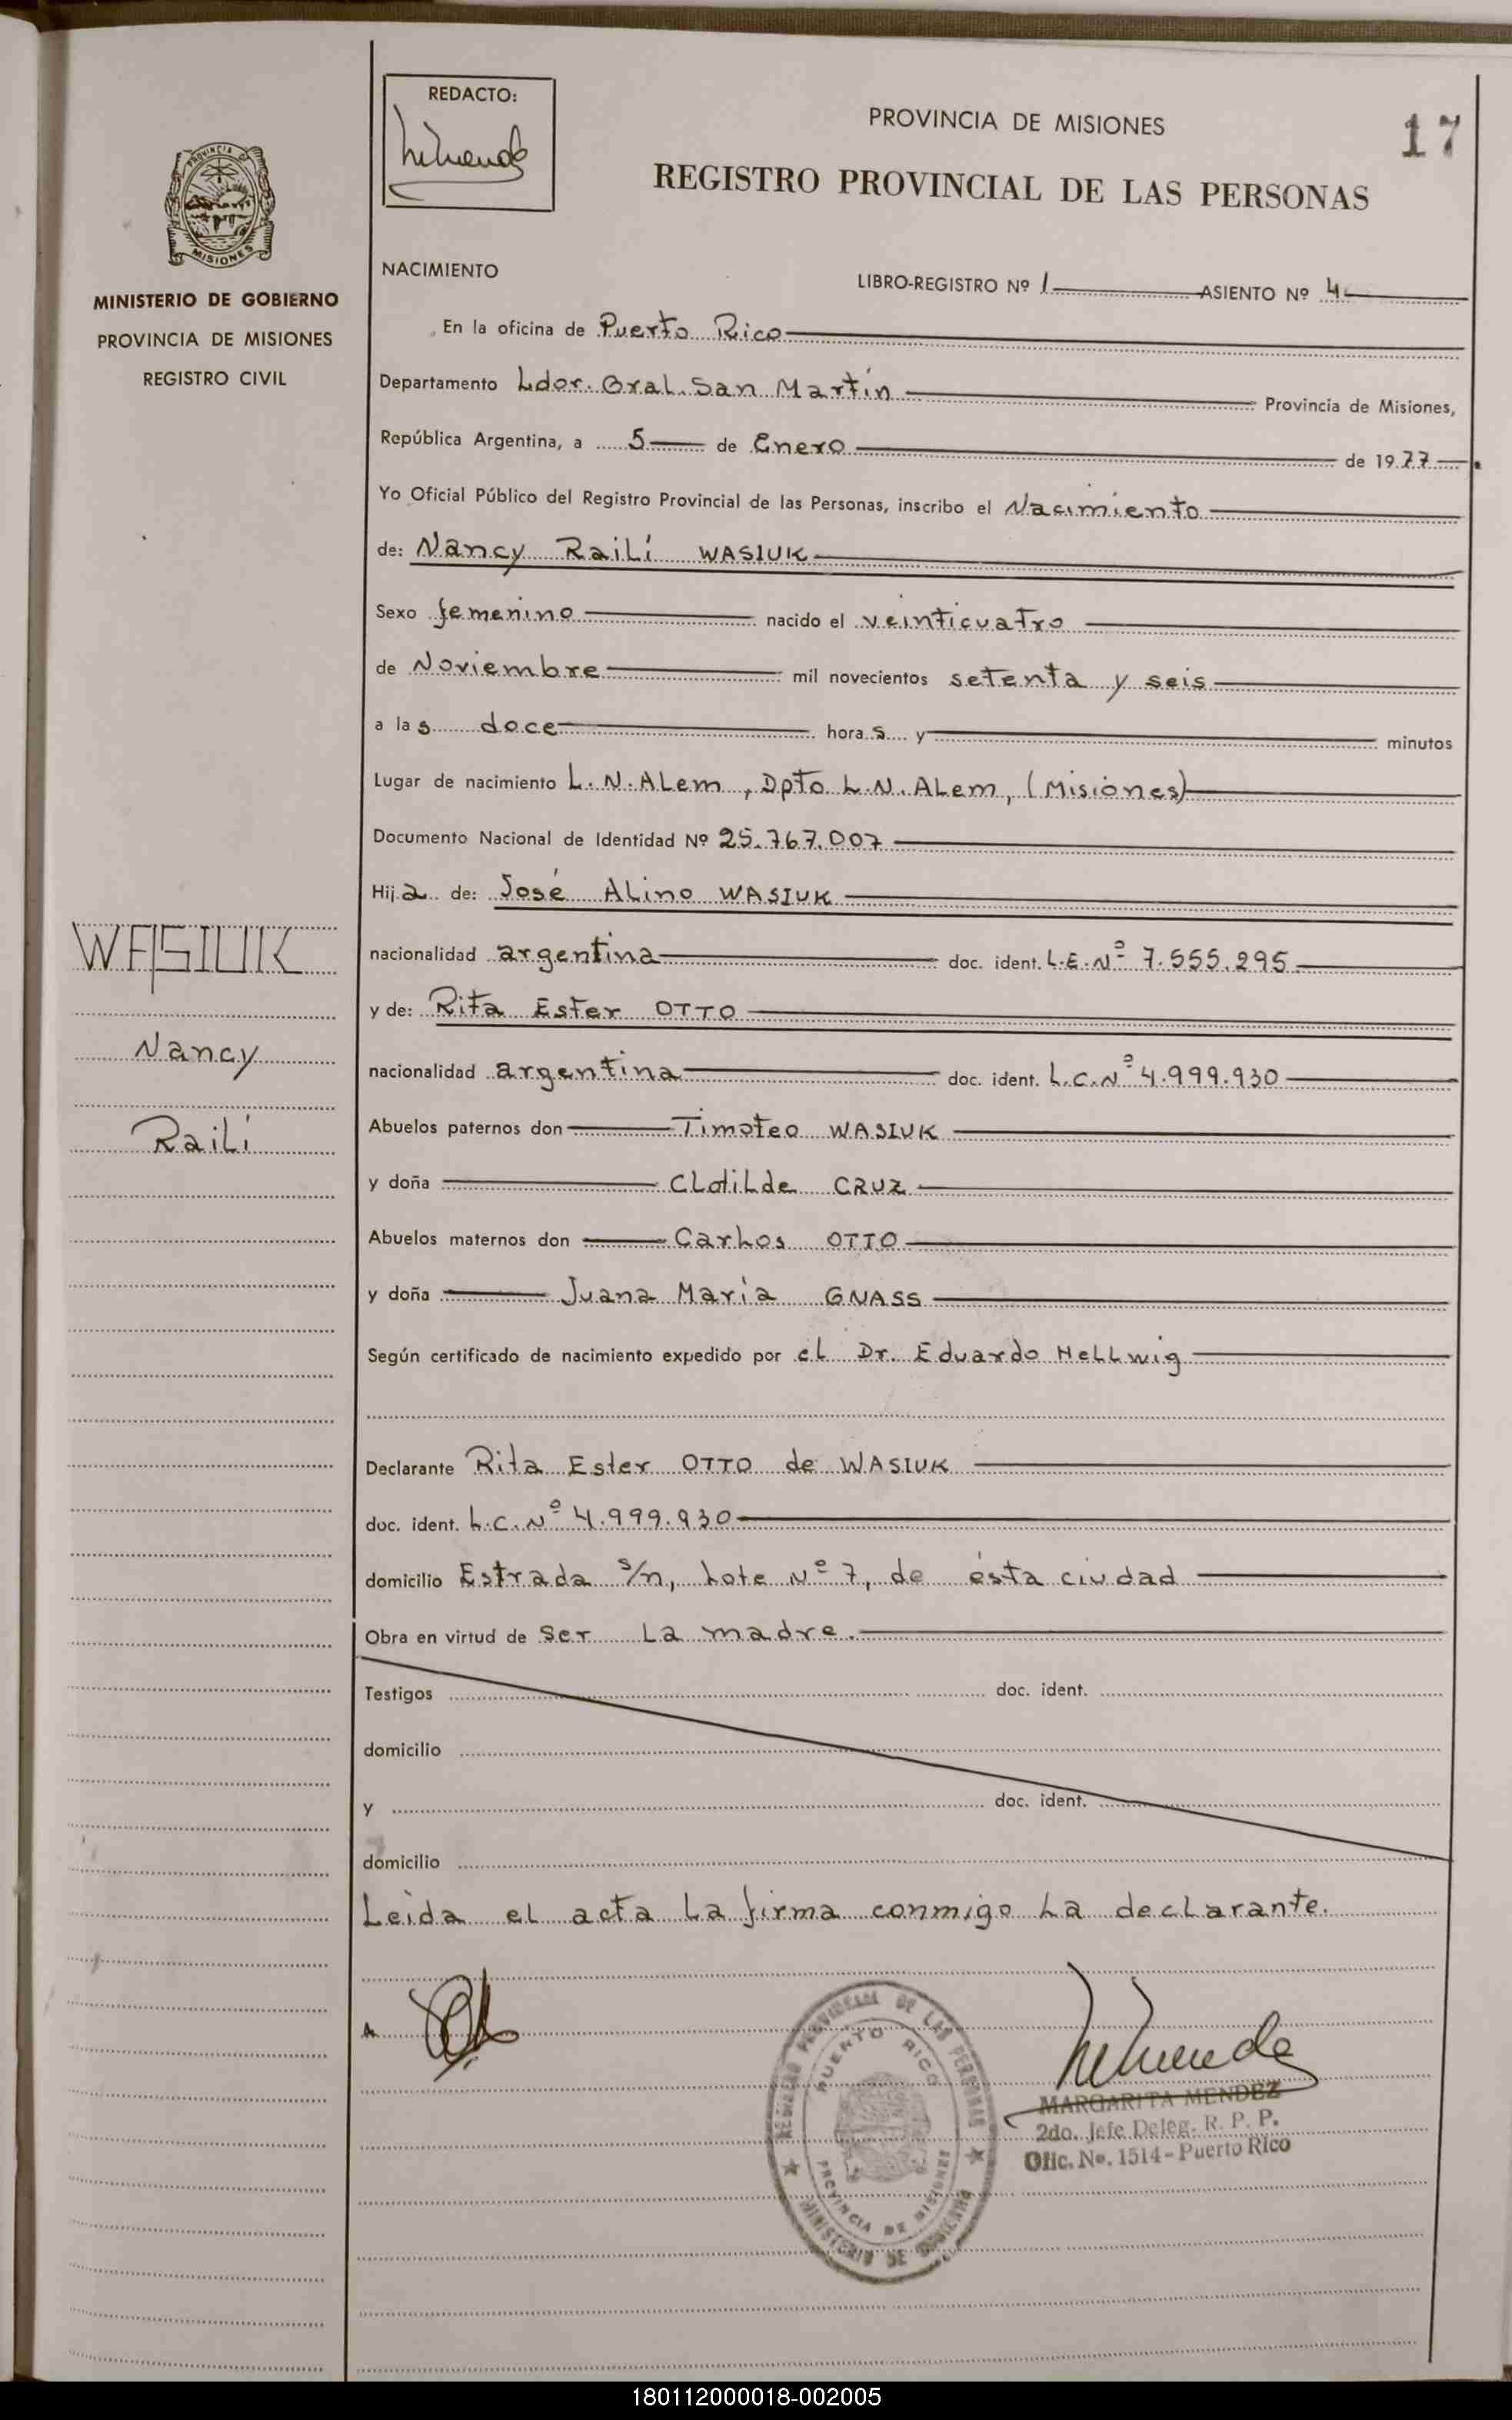 REDACTO:
PROVINCIA DE MISIONES
17
REGISTRO PROVINCIAL DE LAS PERSONAS
PROVINCIA DE
MISIONES
MINISTERIO DE GOBIERNO
PROVINCIA DE MISIONES
REGISTRO CIVIL
NACIMIENTO
LIBRO-REGISTRO Nº 1 ASIENTO Nº 4
En la oficina de Puerto Rico
Departamento Ldor. Gral. San Martín Provincia de Misiones,
República Argentina, a 5 de Enero de 1977
Yo Oficial Público del Registro Provincial de las Personas, inscribo el Nacimiento
de: Nancy Railí WASIUK
Sexo femenino nacido el veinticuatro
de Noviembre mil novecientos setenta y seis
a las doce horas y minutos
Lugar de nacimiento L. N. Alem, Dpto L.N. Alem, (Misiones)
Documento Nacional de Identidad Nº 25.767.007
Hija de: José Alino WASIUK
nacionalidad argentina doc. ident. L.E. Nº 7.555.295
y de: Rita Ester OTTO
nacionalidad argentina doc. ident. L.C. Nº 4.999.930
Abuelos paternos don Timoteo WASIUK
y doña Clotilde CRUZ
Abuelos maternos don Carlos OTTO
y doña Juana María GNASS
Según certificado de nacimiento expedido por el Dr. Eduardo Hellwig
Declarante Rita Ester OTTO de WASIUK
doc. ident. L.C. Nº 4.999.930
domicilio Estrada s/n, Lote Nº 7, de ésta ciudad
Obra en virtud de ser la madre.
Testigos doc. ident.
domicilio
y doc. ident.
domicilio
Leída el acta la firma conmigo la declarante.
WASIUK
Nancy
Railí
REGISTRO PROVINCIAL DE LAS PERSONAS
PUERTO RICO
PROVINCIA DE MISIONES
MINISTERIO DE GOBIERNO
MARGARITA MENDEZ
2do. Jefe Deleg. R. P. P.
Ofic. No. 1514 - Puerto Rico
180112000018-002005